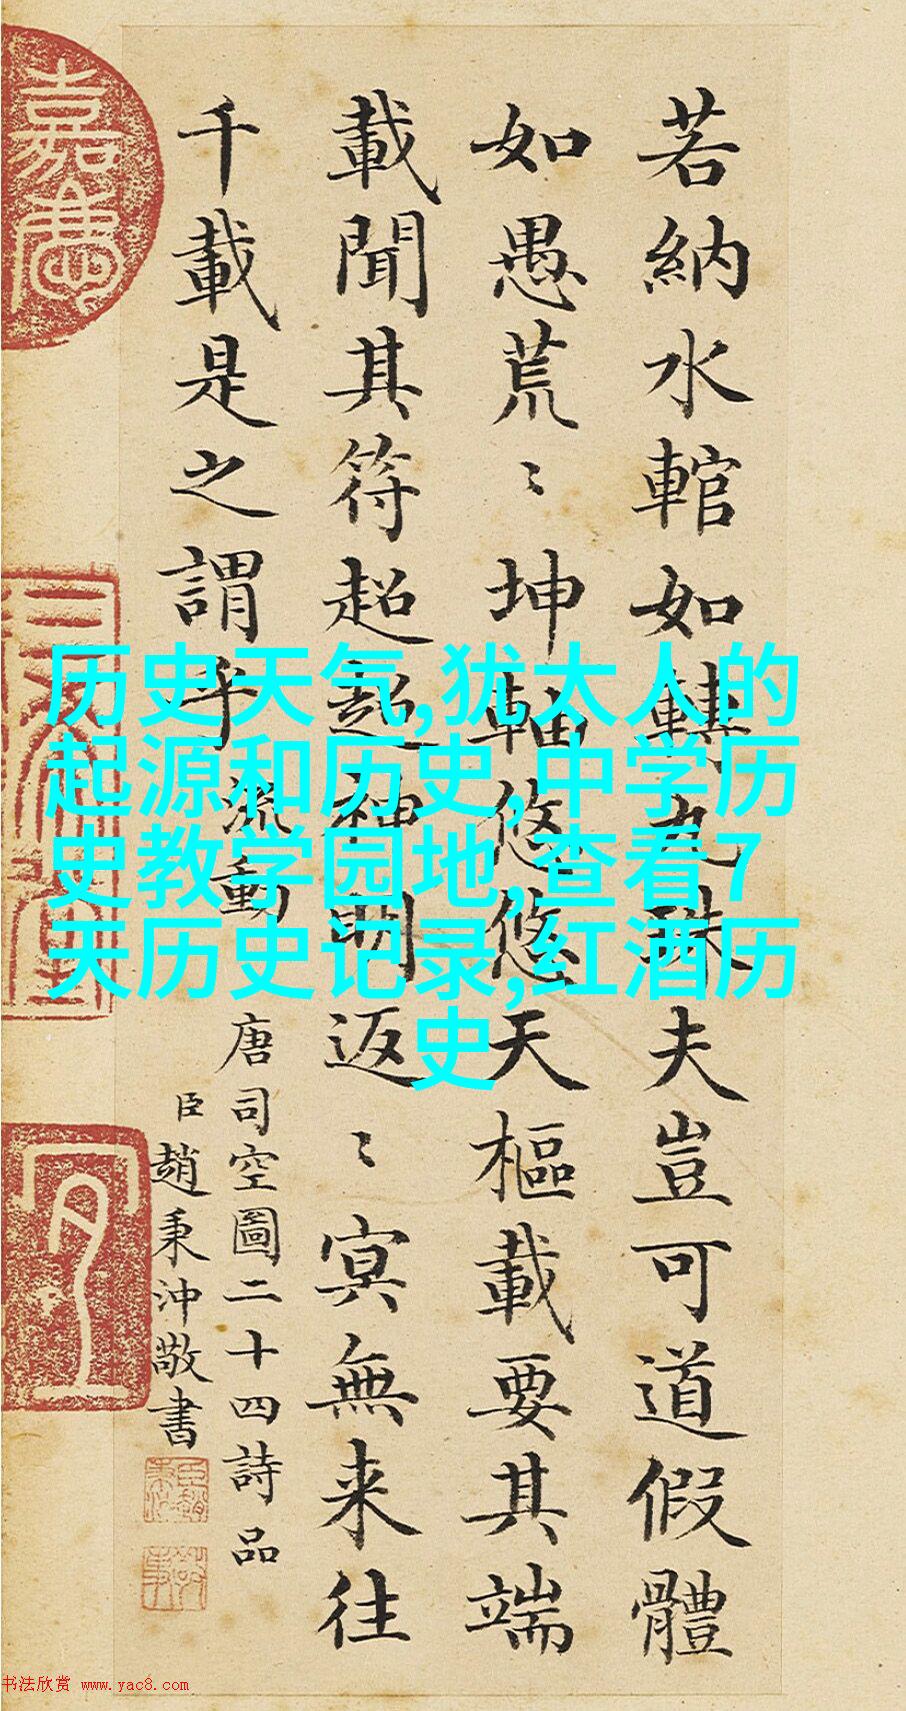 若納水輨如轉丸珠夫豈可道假體
如愚荒〻坤軸悠悠天樞載要其端
載聞其符超超神明返〻冥無来往
千載是之謂乎 流動
唐司空圖二十四詩品
臣趙秉沖敬書
嘉慶
历史天气,犹太人的
起源和历史,中学历
史教学园地,查看7
天历史记录,红酒历
史
书法欣赏 www.yac8.com